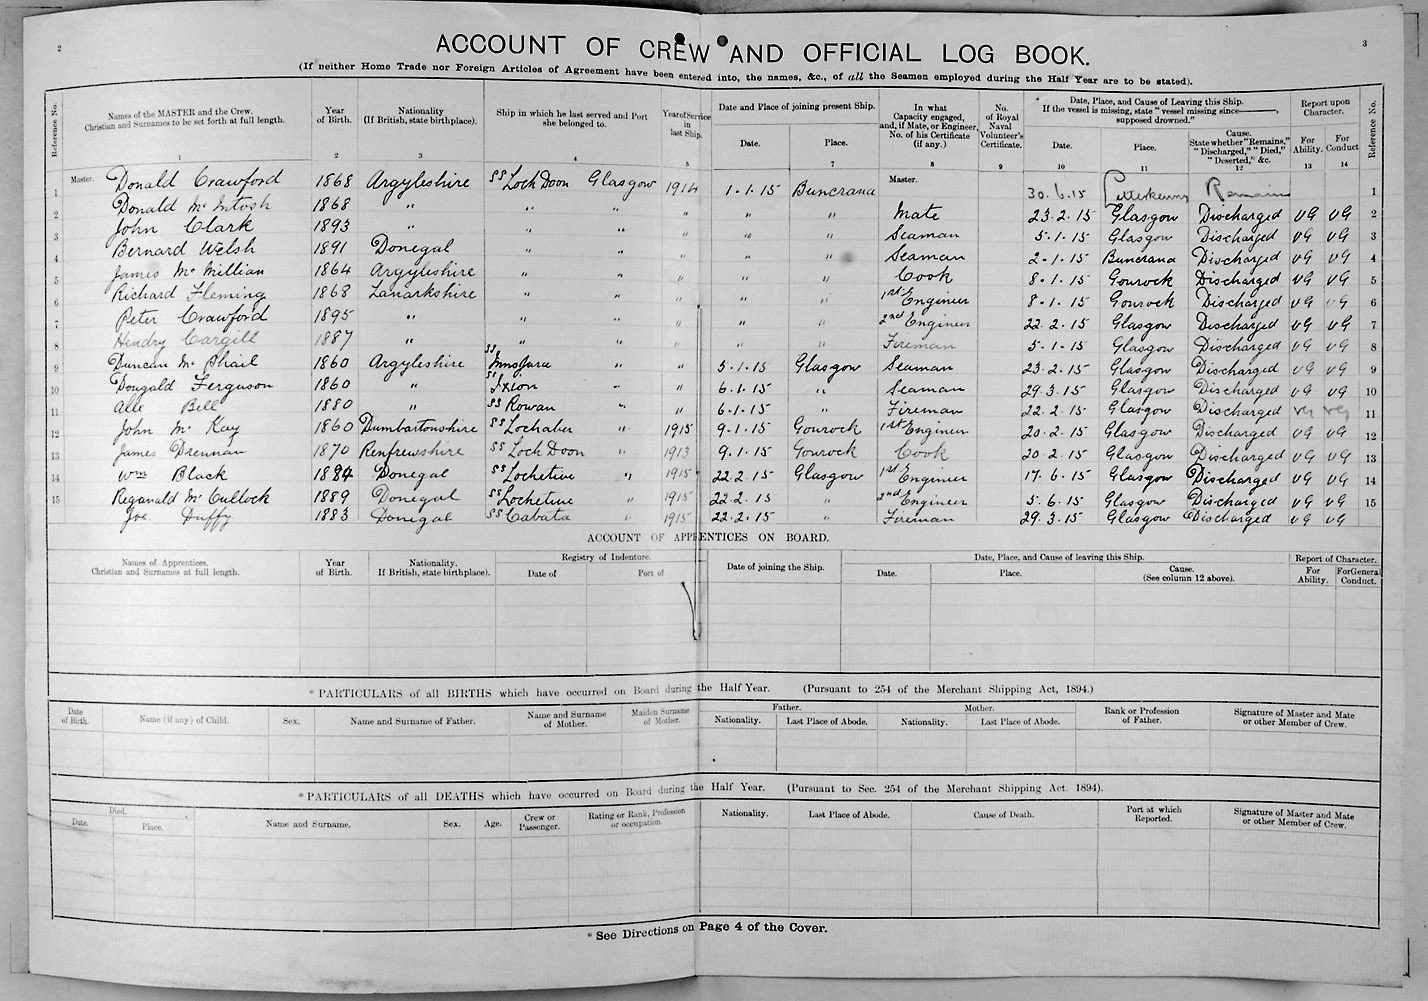 2
3
ACCOUNT OF CREW AND OFFICIAL LOG BOOK.
(If neither Home Trade nor Foreign Articles of Agreement have been entered into, the names, &c., of all the Seamen employed during the Half Year are to be stated).
Reference No. | Names of the MASTER and the Crew. Christian and Surnames to be set forth at full length. | Year of Birth. | Nationality (If British, state birthplace). | Ship in which he last served and Port she belonged to. | Year of Service in last Ship. | Date and Place of joining present Ship. Date. Place. | In what Capacity engaged, and, if Mate, or Engineer, No. of his Certificate (if any.) | No. of Royal Naval Volunteer's Certificate. | * Date, Place, and Cause of Leaving this Ship. If the vessel is missing, state "vessel missing since———, supposed drowned." Date. Place. Cause. State whether "Remains," "Discharged," "Died," "Deserted, &c. | Report upon Character. For Ability. For Conduct | Reference No.
1 2 3 4 5 7 8 9 10 11 12 13 14
1 Master. Donald Crawford 1868 Argyleshire SS Loch Doon Glasgow 1914 1.1.15 Buncrana Master. 30.6.15 Letterkenny Remains 1
2 Donald Mc Intosh 1868 " " " " " " Mate 23.2.15 Glasgow Discharged VG VG 2
3 John Clark 1893 " " " " " " Seaman 5.1.15 Glasgow Discharged VG VG 3
4 Bernard Welsh 1891 Donegal " " " " " Seaman 2.1.15 Buncrana Discharged VG VG 4
5 James Mc Millian 1864 Argyleshire " " " " " Cook 8.1.15 Gourock Discharged VG VG 5
6 Richard Fleming 1868 Lanarkshire " " " " " 1st Engineer 8.1.15 Gourock Discharged VG VG 6
7 Peter Crawford 1895 " " " " " " 2nd Engineer 22.2.15 Glasgow Discharged VG VG 7
8 Hendry Cargill 1887 " " " " " " Fireman 5.1.15 Glasgow Discharged VG VG 8
9 Duncan Mc Phail 1860 Argyleshire SS " " 5.1.15 Glasgow Seaman 23.2.15 Glasgow Discharged VG VG 9
10 Dougald Ferguson 1860 " SS Ixion " " 6.1.15 " Seaman 29.3.15 Glasgow Discharged VG VG 10
11 Bell 1880 " SS Rowan " " 6.1.15 " Fireman 22.2.15 Glasgow Discharged VG VG 11
12 John Mc Kay 1860 Dumbartonshire SS Lochaber " 1915 9.1.15 Gourock 1st Engineer 20.2.15 Glasgow Discharged VG VG 12
13 James Drennan 1870 Renfrewshire SS Loch Doon " 1913 9.1.15 Gourock Cook 20.2.15 Glasgow Discharged VG VG 13
14 Wm Black 1884 Donegal SS Lochetive " 1915 22.2.15 Glasgow 1st Engineer 17.6.15 Glasgow Discharged VG VG 14
15 Reganald Mc Cullock 1889 Donegal SS Lochetive " 1915 22.2.15 " 2nd Engineer 5.6.15 Glasgow Discharged VG VG 15
Joe Duffy 1883 Donegal SS Cabata " 1915 22.2.15 " Fireman 29.3.15 Glasgow Discharged VG VG
ACCOUNT OF APPRENTICES ON BOARD.
Names of Apprentices. Christian and Surnames at full length. | Year of Birth. | Nationality. If British, state birthplace). | Registry of Indenture. Date of Port of | Date of joining the Ship. | Date, Place, and Cause of leaving this Ship. Date. Place. Cause. (See column 12 above). | Report of Character. For Ability. For General Conduct.
* PARTICULARS of all BIRTHS which have occurred on Board during the Half Year. (Pursuant to 254 of the Merchant Shipping Act, 1894.)
Date of Birth. | Name (if any) of Child. | Sex. | Name and Surname of Father. | Name and Surname of Mother. | Maiden Surname of Mother. | Father. Nationality. Last Place of Abode. | Mother. Nationality. Last Place of Abode. | Rank or Profession of Father. | Signature of Master and Mate or other Member of Crew.
*PARTICULARS of all DEATHS which have occurred on Board during the Half Year. (Pursuant to Sec. 254 of the Merchant Shipping Act. 1894).
Died. Date. Place. | Name and Surname. | Sex. | Age. | Crew or Passenger. | Rating or Rank, Profession or occupation. | Nationality. | Last Place of Abode. | Cause of Death. | Port at which Reported. | Signature of Master and Mate or other Member of Crew.
* See Directions on Page 4 of the Cover.